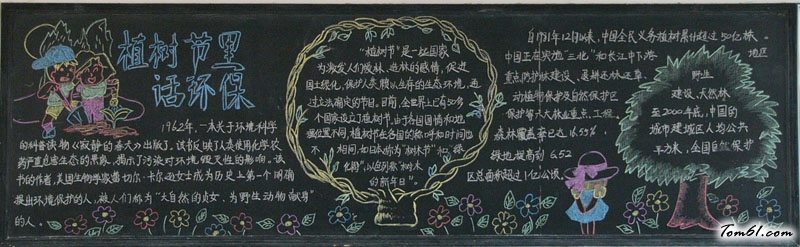 植树节里
话环保
1962年,一本关于环境科学
的科普读物《寂静的春天》出版了,该书反映了人类使用化学农
药严重危害生态的景象,揭示了污染对环境毁灭性的影响。该
书的作者,美国生物学家蕾切尔·卡尔逊女士成为历史上第一个明确
提出环境保护的人,被人们称为“大自然的贞女,为野生动物献身”
的人。
“植树节”是一些国家
为激发人们爱林、造林的感情,促进
国土绿化,保护人类赖以生存的生态环境,通
过立法确定的节日。目前,全世界上已有50多
个国家设立了植树节,由于各国国情和地
理位置不同,植树节在各国的称呼和时间也
不相同,如日本称为“树木节”和“绿
化周”,以色列称“树木
的新年日”。
自1981年12月以来,中国全民义务植树累计超过50亿株。
中国正在实施“三北”和长江中下游 地区
重点防护林建设、退耕还林还草、
动植物保护及自然保护区
保护等六大林业重点工程,
森林覆盖率已达16.55%。
绿地提高到 6.52
区总面积超过1.1亿公顷。
野业
建设、天然林
至2000年底,中国的
城市建成区人均公共
平方米,全国自然保护
Tom61.com